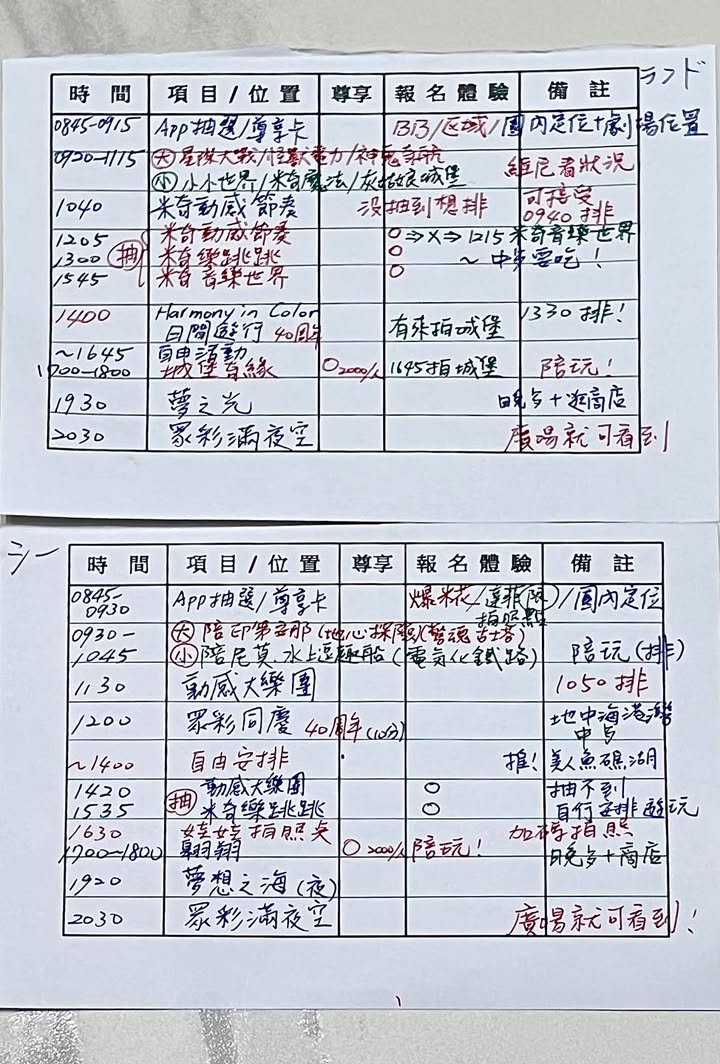 ランド
時間 項目/位置 尊享 報名體驗 備註
0845-0915 App抽選/尊享卡 BB/区域/園內定位+劇場位置
0920-1115 大 星際大戰/怪獸電力/
小 小小世界/米奇魔法/灰姑娘城堡 維尼看狀況
1040 米奇動感節奏 沒抽到想排 可接受
0940排
1205 米奇動感節奏 ○⇒X⇒1215米奇音樂世界
1300 抽 米奇樂跳跳 ○ ~中午要吃!
1545 米奇音樂世界 ○
1400 Harmony in Color 1330排!
日間遊行 40周年 有來拍城堡
~1645 自由活動
1700-1800 城堡奇緣 ○2000/人 1645拍城堡 陪玩!
1930 夢之光 晚多+逛商店
2030 眾彩滿夜空 廣場就可看到
シー
時間 項目/位置 尊享 報名體驗 備註
0845-
0930 App抽選/尊享卡 爆米花/達菲(限)/園內定位
拍照點
0930- 大 陪印第安那(地心探險/驚魂古塔)
1045 小 陪尼莫 水上逗趣船(電気化鐵路) 陪玩(排)
1130 動感大樂團 1050排
1200 眾彩同慶 40周年(10分) 地中海港灣
中午
~1400 自由安排 推! 美人魚礁湖
1420 動感大樂團 ○ 抽不到
1535 抽 米奇樂跳跳 ○ 自行安排遊玩
1630 娃娃拍照矣 加碼拍照
1700-1800 翱翔 ○2000/人 陪玩! 晚多+商店
1920 夢想之海(夜)
2030 眾彩滿夜空 廣場就可看到!